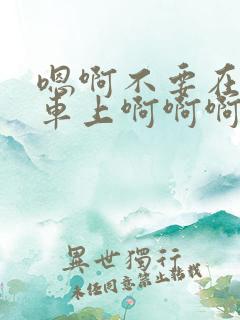 嗯啊不要在
車上啊啊啊
異世獨行
未经同意禁止转载